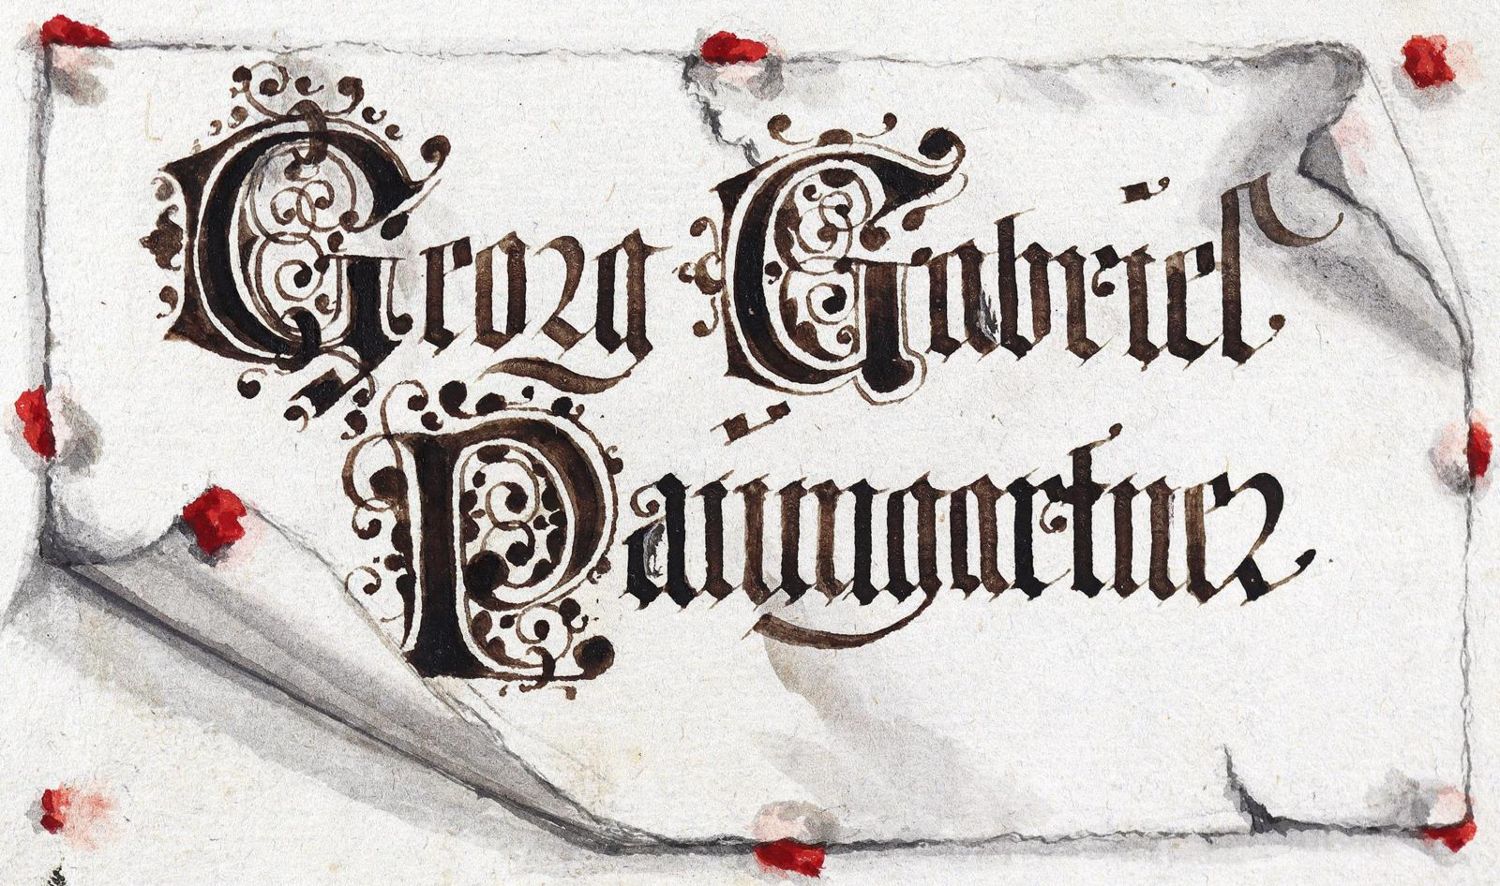 Georg Gabriel
Paümgartner